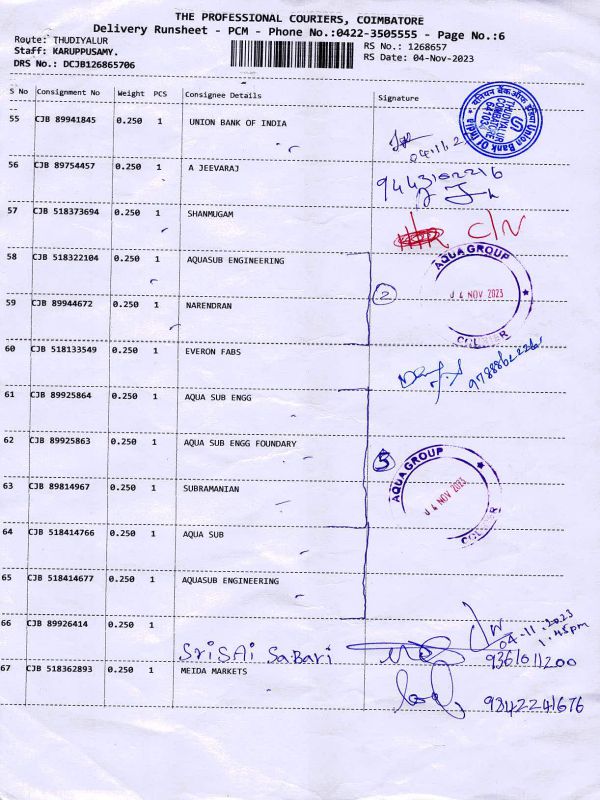 THE PROFESSIONAL COURIERS, COIMBATORE
Delivery Runsheet - PCM - Phone No.:0422-3505555 - Page No.:6
Route: THUDIYALUR
Staff: KARUPPUSAMY.
DRS No.: DCJB126865706
RS No.: 1268657
RS Date: 04-Nov-2023
S No Consignment No Weight PCS Consignee Details Signature
55 CJB 89941845 0.250 1 UNION BANK OF INDIA
56 CJB 89754457 0.250 1 A JEEVARAJ
57 CJB 518373694 0.250 1 SHANMUGAM C/N
58 CJB 518322104 0.250 1 AQUASUB ENGINEERING
AQUA GROUP
2 04 NOV 2023
COURIER
59 CJB 89944672 0.250 1 NARENDRAN
60 CJB 518133549 0.250 1 EVERON FABS
61 CJB 89925864 0.250 1 AQUA SUB ENGG
62 CJB 89925863 0.250 1 AQUA SUB ENGG FOUNDARY
AQUA GROUP
5 04 NOV 2023
COURIER
63 CJB 89814967 0.250 1 SUBRAMANIAN
64 CJB 518414766 0.250 1 AQUA SUB
65 CJB 518414677 0.250 1 AQUASUB ENGINEERING
66 CJB 89926414 0.250 1
04-11-2023
1.45pm
SriSAi SaBari 9361011200
67 CJB 518362893 0.250 1 MEIDA MARKETS
9342241676